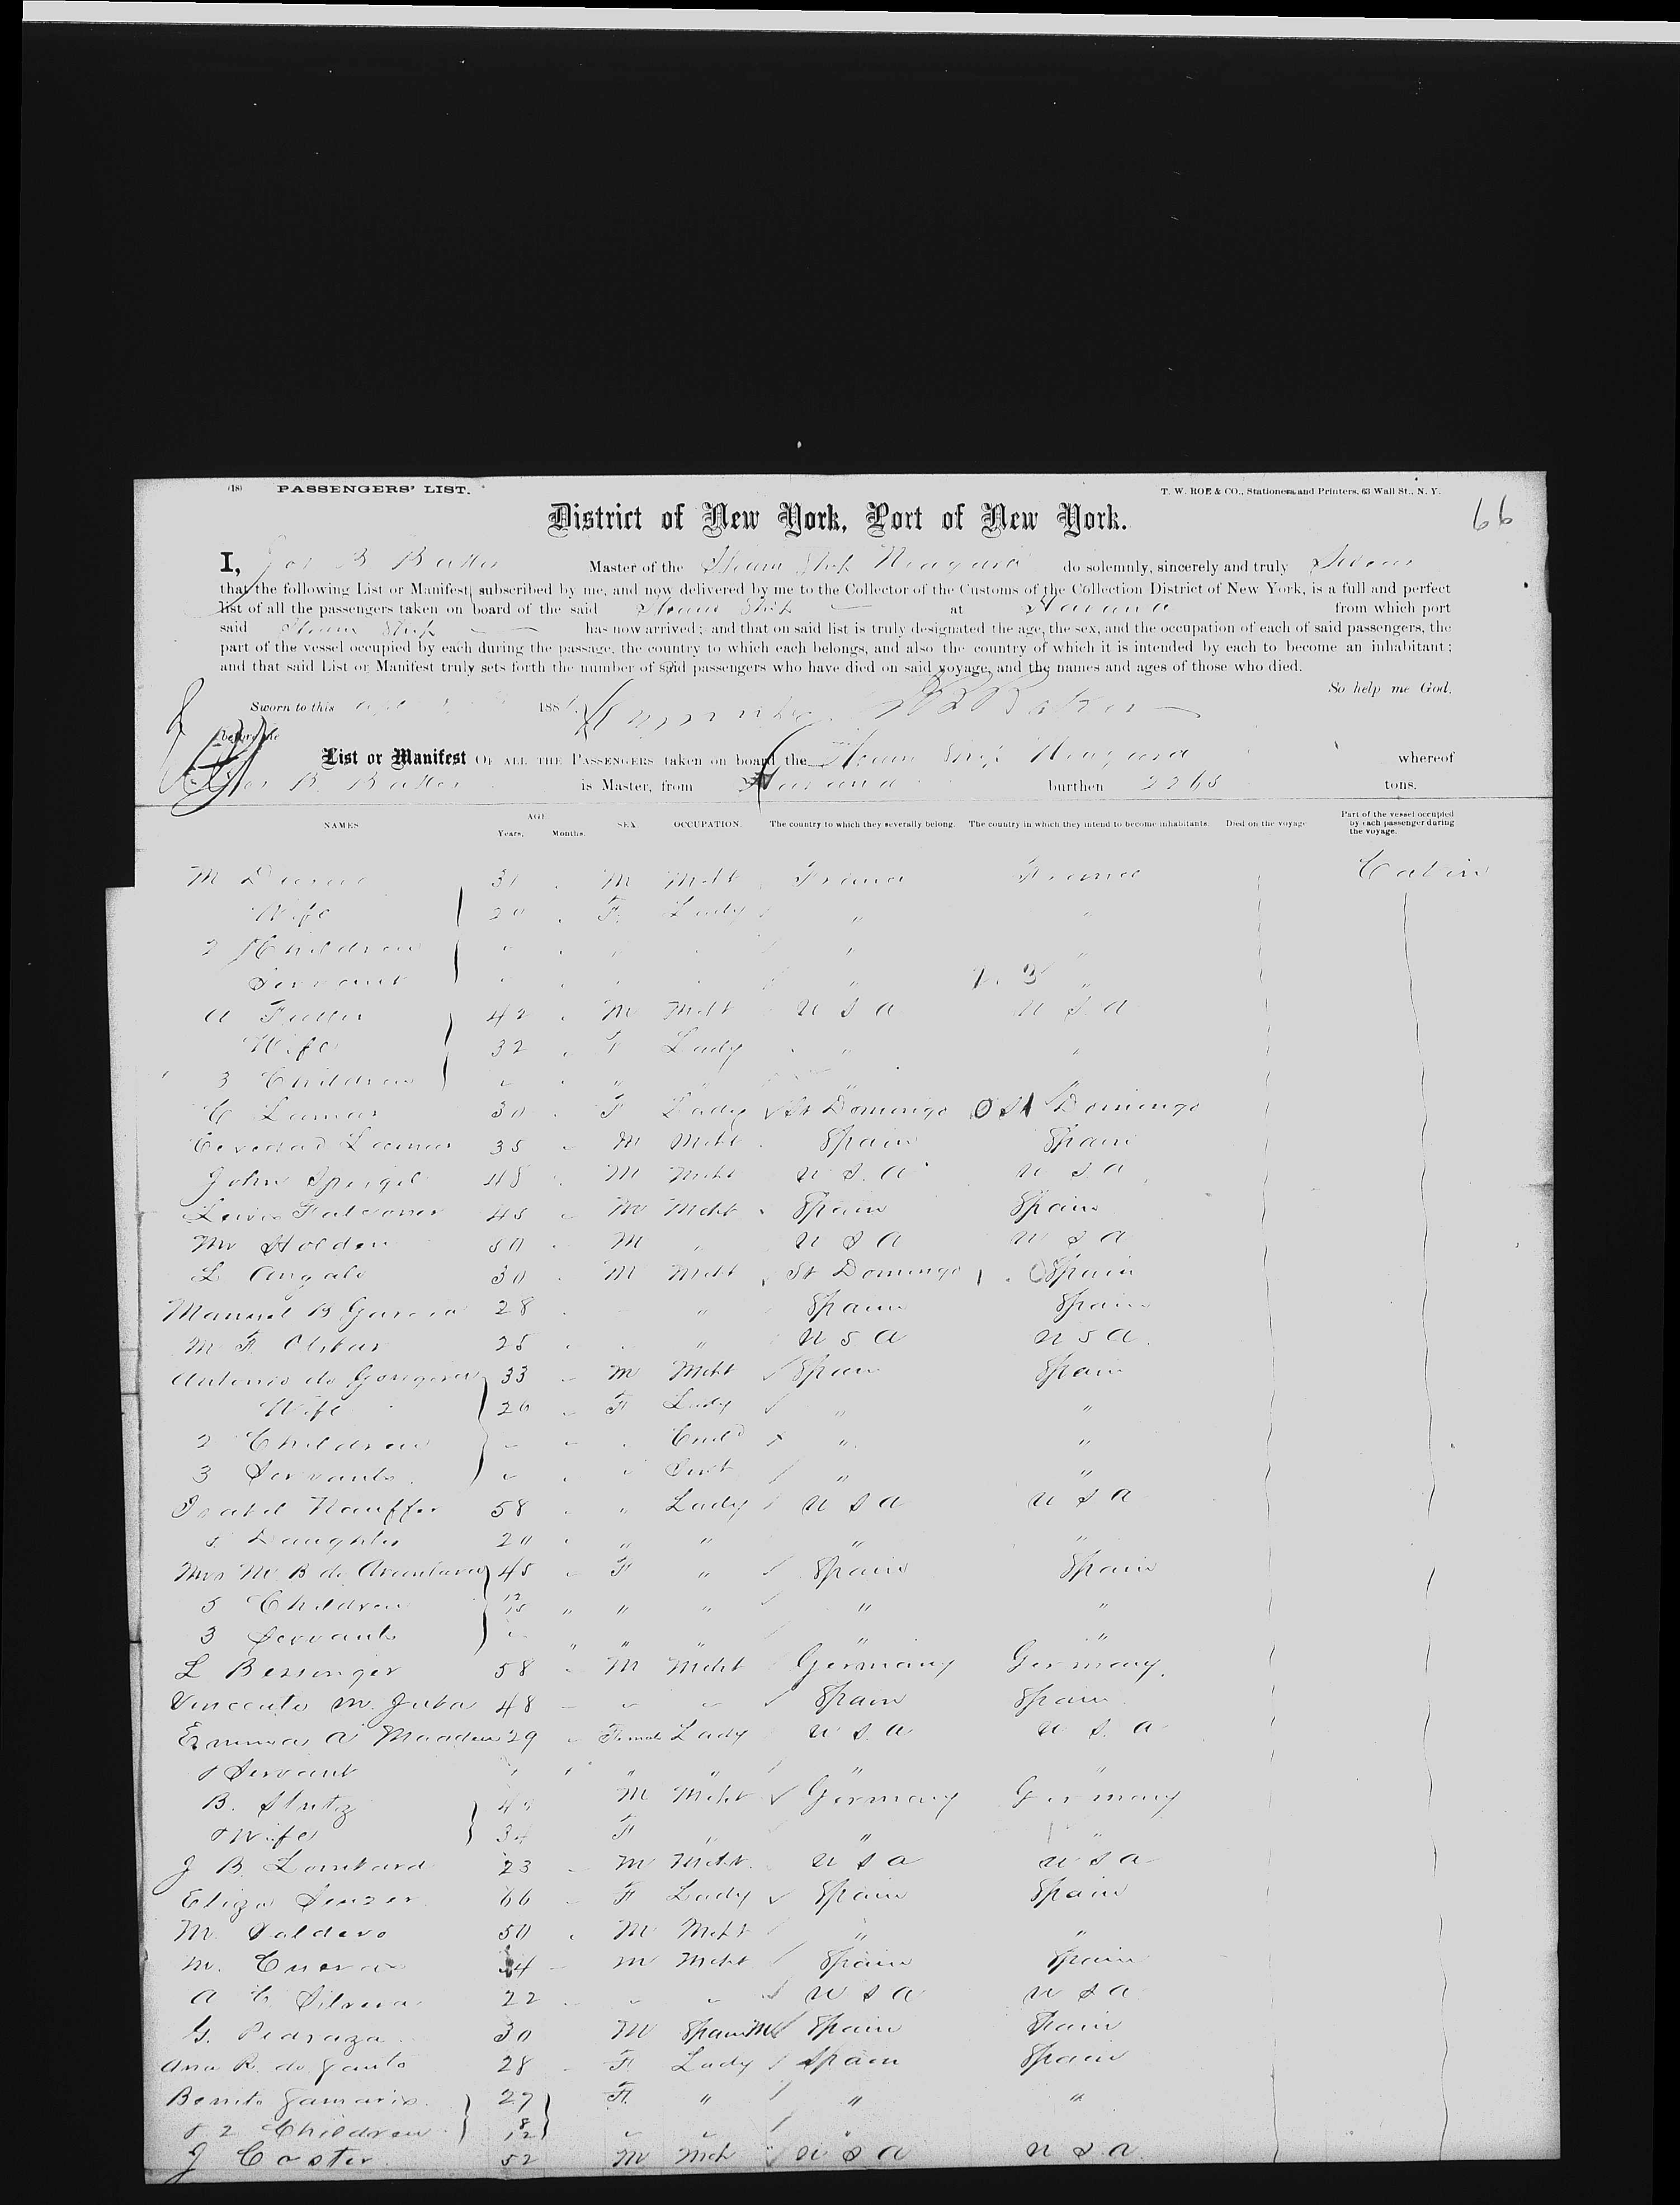 (18) PASSENGERS' LIST. T. W. ROE & CO., Stationers and Printers, 63 Wall St., N. Y.
District of New York, Port of New York. 66
I, B Baker Master of the Steam Ship Niagara do solemnly, sincerely and truly Swear
that the following List or Manifest, subscribed by me, and now delivered by me to the Collector of the Customs of the Collection District of New York, is a full and perfect
list of all the passengers taken on board of the said Steam Ship at Havana from which port
said Steam Ship has now arrived; and that on said list is truly designated the age, the sex, and the occupation of each of said passengers, the
part of the vessel occupied by each during the passage, the country to which each belongs, and also the country of which it is intended by each to become an inhabitant;
and that said List or Manifest truly sets forth the number of said passengers who have died on said voyage, and the names and ages of those who died.
So help me God.
Sworn to this 188 B Baker
before me
List or Manifest OF ALL THE PASSENGERS taken on board the Steam Ship Niagara whereof
B. Baker is Master, from Havana burthen 2265 tons.
NAMES AGE Years. Months. SEX OCCUPATION. The country to which they severally belong. The country in which they intend to become inhabitants. Died on the voyage Part of the vessel occupied by each passenger during the voyage.
M 31 M Mcht France France Cabin
Wife 20 F. Lady " "
2 Children " "
Servant " "
A Fuller 42 M Mcht U S A U S A
Wife 32 F Lady " "
3 Children " " " "
C Lamar 30 F Lady St Domingo St Domingo
Lamar 35 M Mcht Spain Spain
John Speigel 48 M Mcht U S. A U S A
Louis Falconer 45 M Mcht Spain Spain
Mr Holden 50 M " U S A U S A
L Angalo 30 M Mcht St Domingo Spain
Manuel B Garcia 28 " Spain Spain
M F 25 " U S A U S A.
Antonio de 33 M Mcht Spain Spain
Wife 26 F Lady " "
2 Children Chld " "
3 Servants Svt " "
Isabel Hauffer 58 " Lady U S A U S A
& Daughter 20 " " " "
Mrs M B de 45 F " Spain Spain
5 Children " " " " "
3 Servants " " " " "
L Bessinger 58 M Mcht Germany Germany.
Vincente M. Juba 48 Spain Spain
Emma A Madden 29 Female Lady U S. A U S. A
& Servant " " " "
B. Stutz M Mcht Germany Germany
& Wife 34 F " " "
J B Lombard 23 M Mcht. U S A U S A
Eliza 66 F Lady Spain Spain
M. Valdevo 50 M Mcht " "
M. Cuervas 34 M Mcht Spain Spain
A C Silvera 22 U S A U S A
G. Pedraza 30 M Spain Spain
Ana R. de 28 F Lady Spain Spain
Benito Gamaris 27 F. " " "
& 2 Children 8 12 "
J Coster 52 M Mch U S A U S A